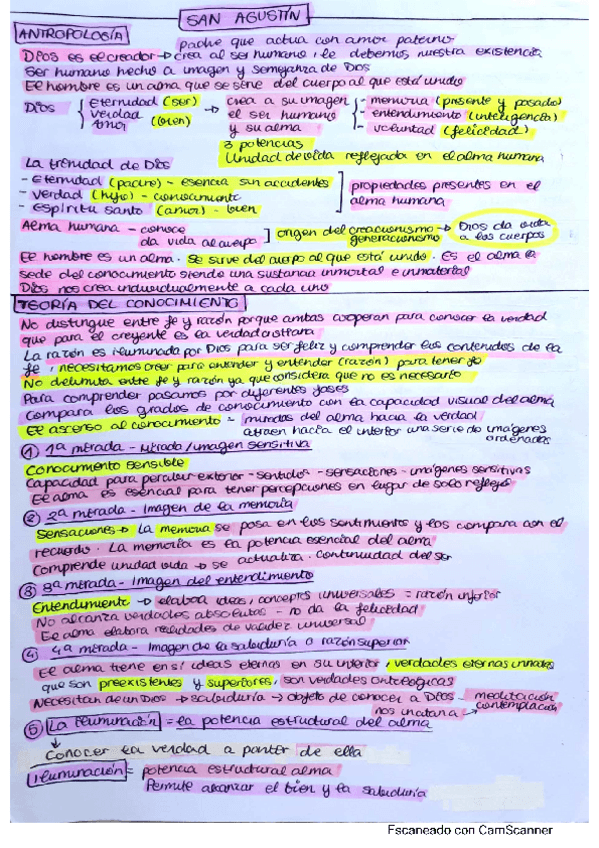 SAN AGUSTÍN
ANTROPOLOGÍA
padre que actua con amor paterno
Dios es el creador → crea al ser humano, le debemos nuestra existencia
Ser humano hecho a imagen y semejanza de Dios
El hombre es un alma que se sirve del cuerpo al que está unido
Dios { Eternidad (ser) Verdad Amor (bien) → crea a su imagen el ser humano y su alma { - memoria (presente y pasado) - entendimiento (inteligencia) - voluntad (felicidad)
3 potencias
Unidad de vida reflejada en el alma humana
La trinidad de Dios
- Eternidad (padre) - esencia sin accidentes
- Verdad (hijo) - conocimiento
- Espíritu santo (amor) - bien
] propiedades presentes en el alma humana
Alma humana - conoce
da vida al cuerpo
] origen del creacionismo generacionismo → Dios da vida a los cuerpos
El hombre es un alma. Se sirve del cuerpo al que está unido. Es el alma la
sede del conocimiento siendo una sustancia inmortal e inmaterial
Dios nos crea individualmente a cada uno
TEORÍA DEL CONOCIMIENTO
No distingue entre fe y razón porque ambas cooperan para conocer la verdad
que para el creyente es la verdad cristiana
La razón es iluminada por Dios para ser feliz y comprender los contenidos de la
fe, necesitamos creer para entender y entender (razón) para tener fe
No delimita entre fe y razón ya que considera que no es necesario
Para comprender pasamos por diferentes fases
Compara los grados de conocimiento con la capacidad visual del alma
El ascenso al conocimiento = miradas del alma hacia la verdad
atraen hacia el interior una serie de imágenes
ordenadas
① 1ª mirada - Mirada/imagen sensitiva
Conocimiento sensible
Capacidad para percibir exterior - sentidos - sensaciones - imágenes sensitivas
El alma es esencial para tener percepciones en lugar de solo reflejos
② 2ª mirada - Imagen de la memoria
Sensaciones → La memoria se posa en los sentimientos y los compara con el
recuerdo. La memoria es la potencia esencial del alma
Comprende unidad vida → se actualiza. Continuidad del ser
③ 3ª mirada - Imagen del entendimiento
Entendimiento → elabora ideas, conceptos universales = razón inferior
No alcanza verdades absolutas - no da la felicidad
El alma elabora realidades de validez universal
④ 4ª mirada - Imagen de la sabiduría o razón superior
El alma tiene en sí ideas eternas en su interior, verdades eternas innatas
que son preexistentes y superiores, son verdades ontológicas
Necesitan de un Dios → sabiduría → objeto de conocer a Dios - meditación
contemplación
⑤ La iluminación = la potencia estructural del alma
↓
Conocer la verdad a partir de ella
Iluminación = potencia estructural alma
Permite alcanzar el bien y la sabiduría
Escaneado con CamScanner